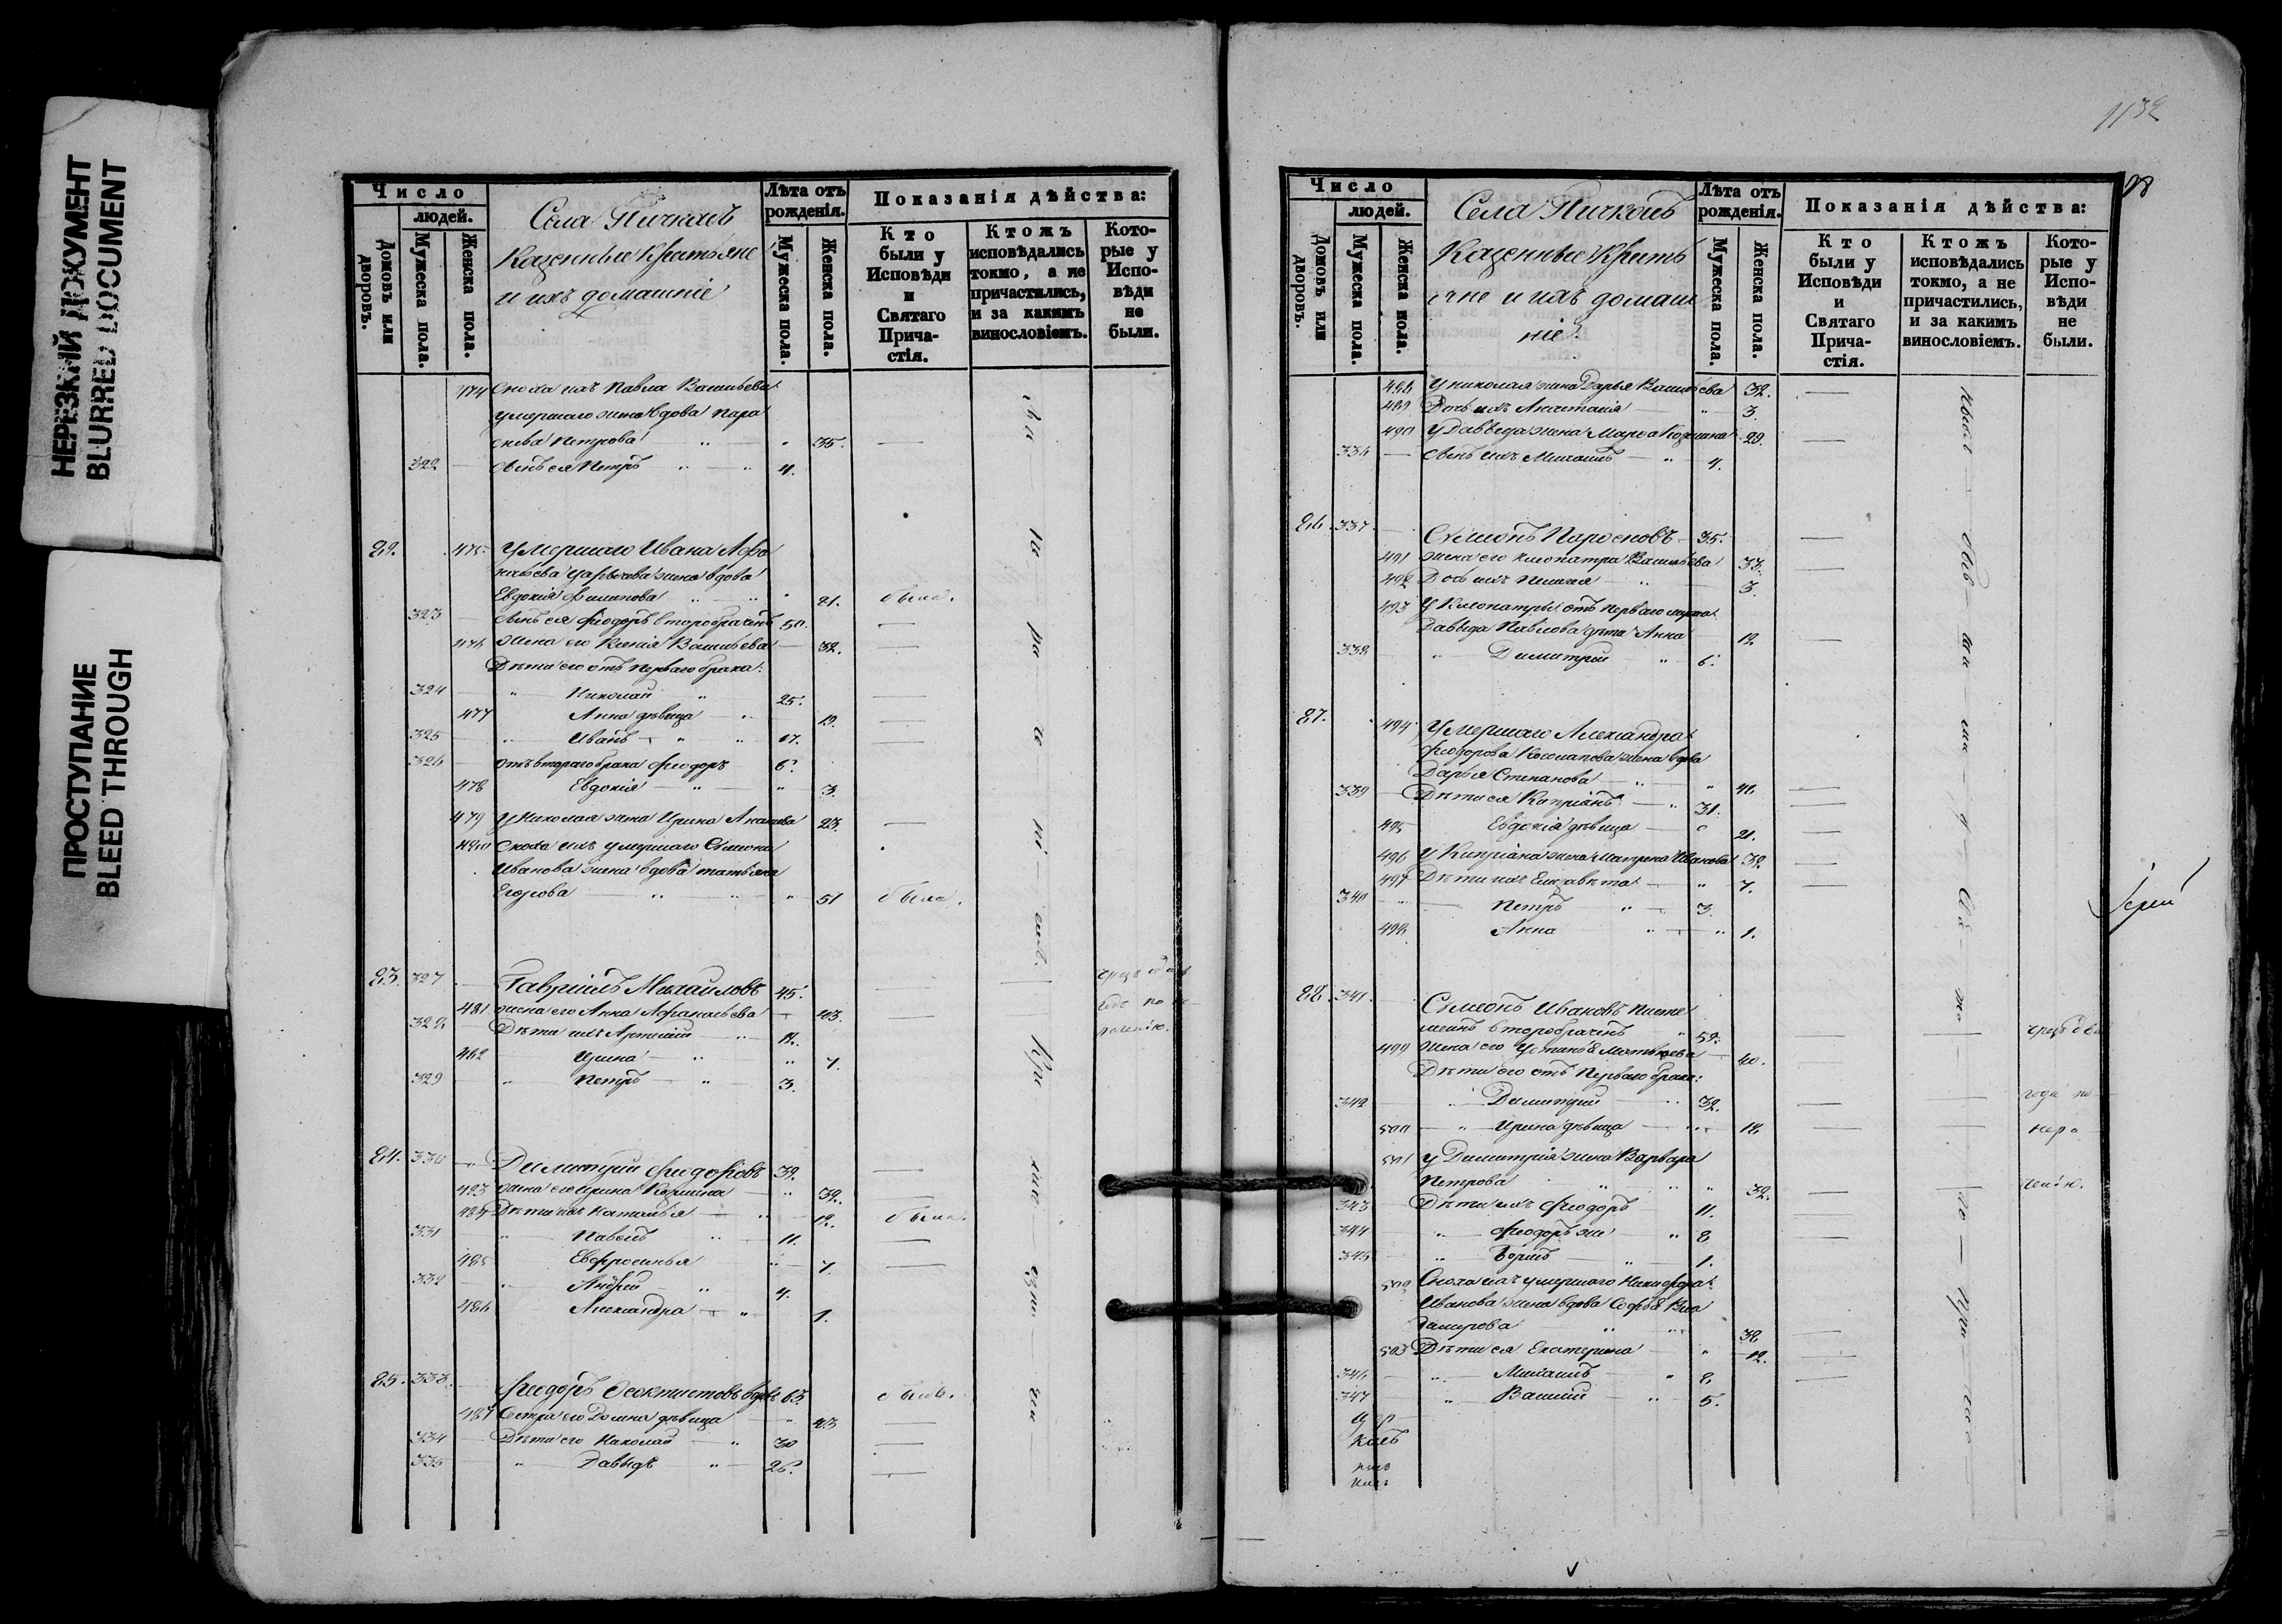 НЕРЕЗКИЙ ДОКУМЕНТ
BLURRED DOCUMENT
ПРОСТУПАНИЕ
BLEED THROUGH
Число
людей.
Домовъ или дворовъ.
Мужеска пола.
Женска пола.
Села
Казенные Крестьяне
и ихъ домашніе
Лѣта отъ рожденія.
Мужеска пола.
Женска пола.
Показанія дѣйства:
Кто были у Исповѣди и Святаго Причастія.
Ктожъ исповѣдались токмо, а не причастились, и за какимъ винословіемъ.
Которые у Исповѣди не были.
474 Сноха ихъ Павла Васильева
умершаго жена вдова Пара
скева Петрова 35.
322 Сынъ ея Петръ 4.
82. 475 Умершаго Ивана Афо
насьева жена вдова
Евдокія Филипова 81. была.
323 Сынъ ея Феодоръ второбрачнъ 50.
476 Жена его Ксенія Васильева 32.
Дѣти его отъ перваго брака:
324 Николай 25.
477 Анна дѣвица 19.
325 Иванъ 17.
326 Отъ втораго брака Феодоръ 6.
478 Евдокія 3.
479 У Николая жена Ирина 23.
480 Сноха ихъ умершаго Симеона
Иванова жена вдова Татьяна
Егорова 51 была.
83. 327 Гавріилъ Михайловъ 45.
481 Жена его Анна Афанасьева 43.
328 Дѣти ихъ Артемій 12.
482 Ирина 7.
329 Петръ 3.
84. 330 Димитрій Феодоровъ 39.
483 Жена его Ирина 39.
484 Дѣти ихъ Наталья 12. была.
331 Павелъ 11.
485 Евфросинья 7.
332 Андрей 4.
486 Александра 1.
85. 333. Феодоръ Феоктистовъ вдовъ 63. былъ.
487 Сестра его Домна дѣвица 43
334 Дѣти его Николай 30
335 Давыдъ 26.
1132
98
Число
людей.
Домовъ или дворовъ.
Мужеска пола.
Женска пола.
Села
Казенные Кресть
яне и ихъ домаш
ніе
Лѣта отъ рожденія.
Мужеска пола.
Женска пола.
Показанія дѣйства:
Кто были у Исповѣди и Святаго Причастія.
Ктожъ исповѣдались токмо, а не причастились, и за какимъ винословіемъ.
Которые у Исповѣди не были.
488 У Николая жена Дарья Васильева 32.
489 Дочь ихъ Анастасія 3.
490 У Давыда жена Марѳа 29.
336 Сынъ ихъ Михаилъ 4.
86. 337. Симеонъ 35.
491 Жена его Клеопатра Васильева 33.
492 Дочь ихъ 3.
493 У Клеопатры отъ перваго мужа
Давыда Павлова дѣти Анна 12
338 Димитрій 6.
87. 494 Умершаго Александра
Феодорова жена вдова
Дарья Степанова
339 Дѣти ея Кипріанъ 31.
495 Евдокія дѣвица 21.
496 У Кипріана жена Матрена Иванова 32.
497 Дѣти ихъ Елизавета 7.
340 Петръ 3.
498 Анна 1.
Іерей
88. 341. Симеонъ Ивановъ
второбрачнъ 52.
499 Жена его Матвѣева 40.
Дѣти его отъ перваго брака:
342 Димитрій 32.
500 Ирина дѣвица 18.
501 У Димитрія жена Варвара
Петрова 32.
343 Дѣти ихъ Феодоръ 11.
344 Феодоръ же 8
345 1.
502 Сноха ихъ умершаго Никифора
Иванова жена вдова Софья Вла
димирова 38
503 Дѣти ея Екатерина 12.
346 Михаилъ 8
347 Василій 5.